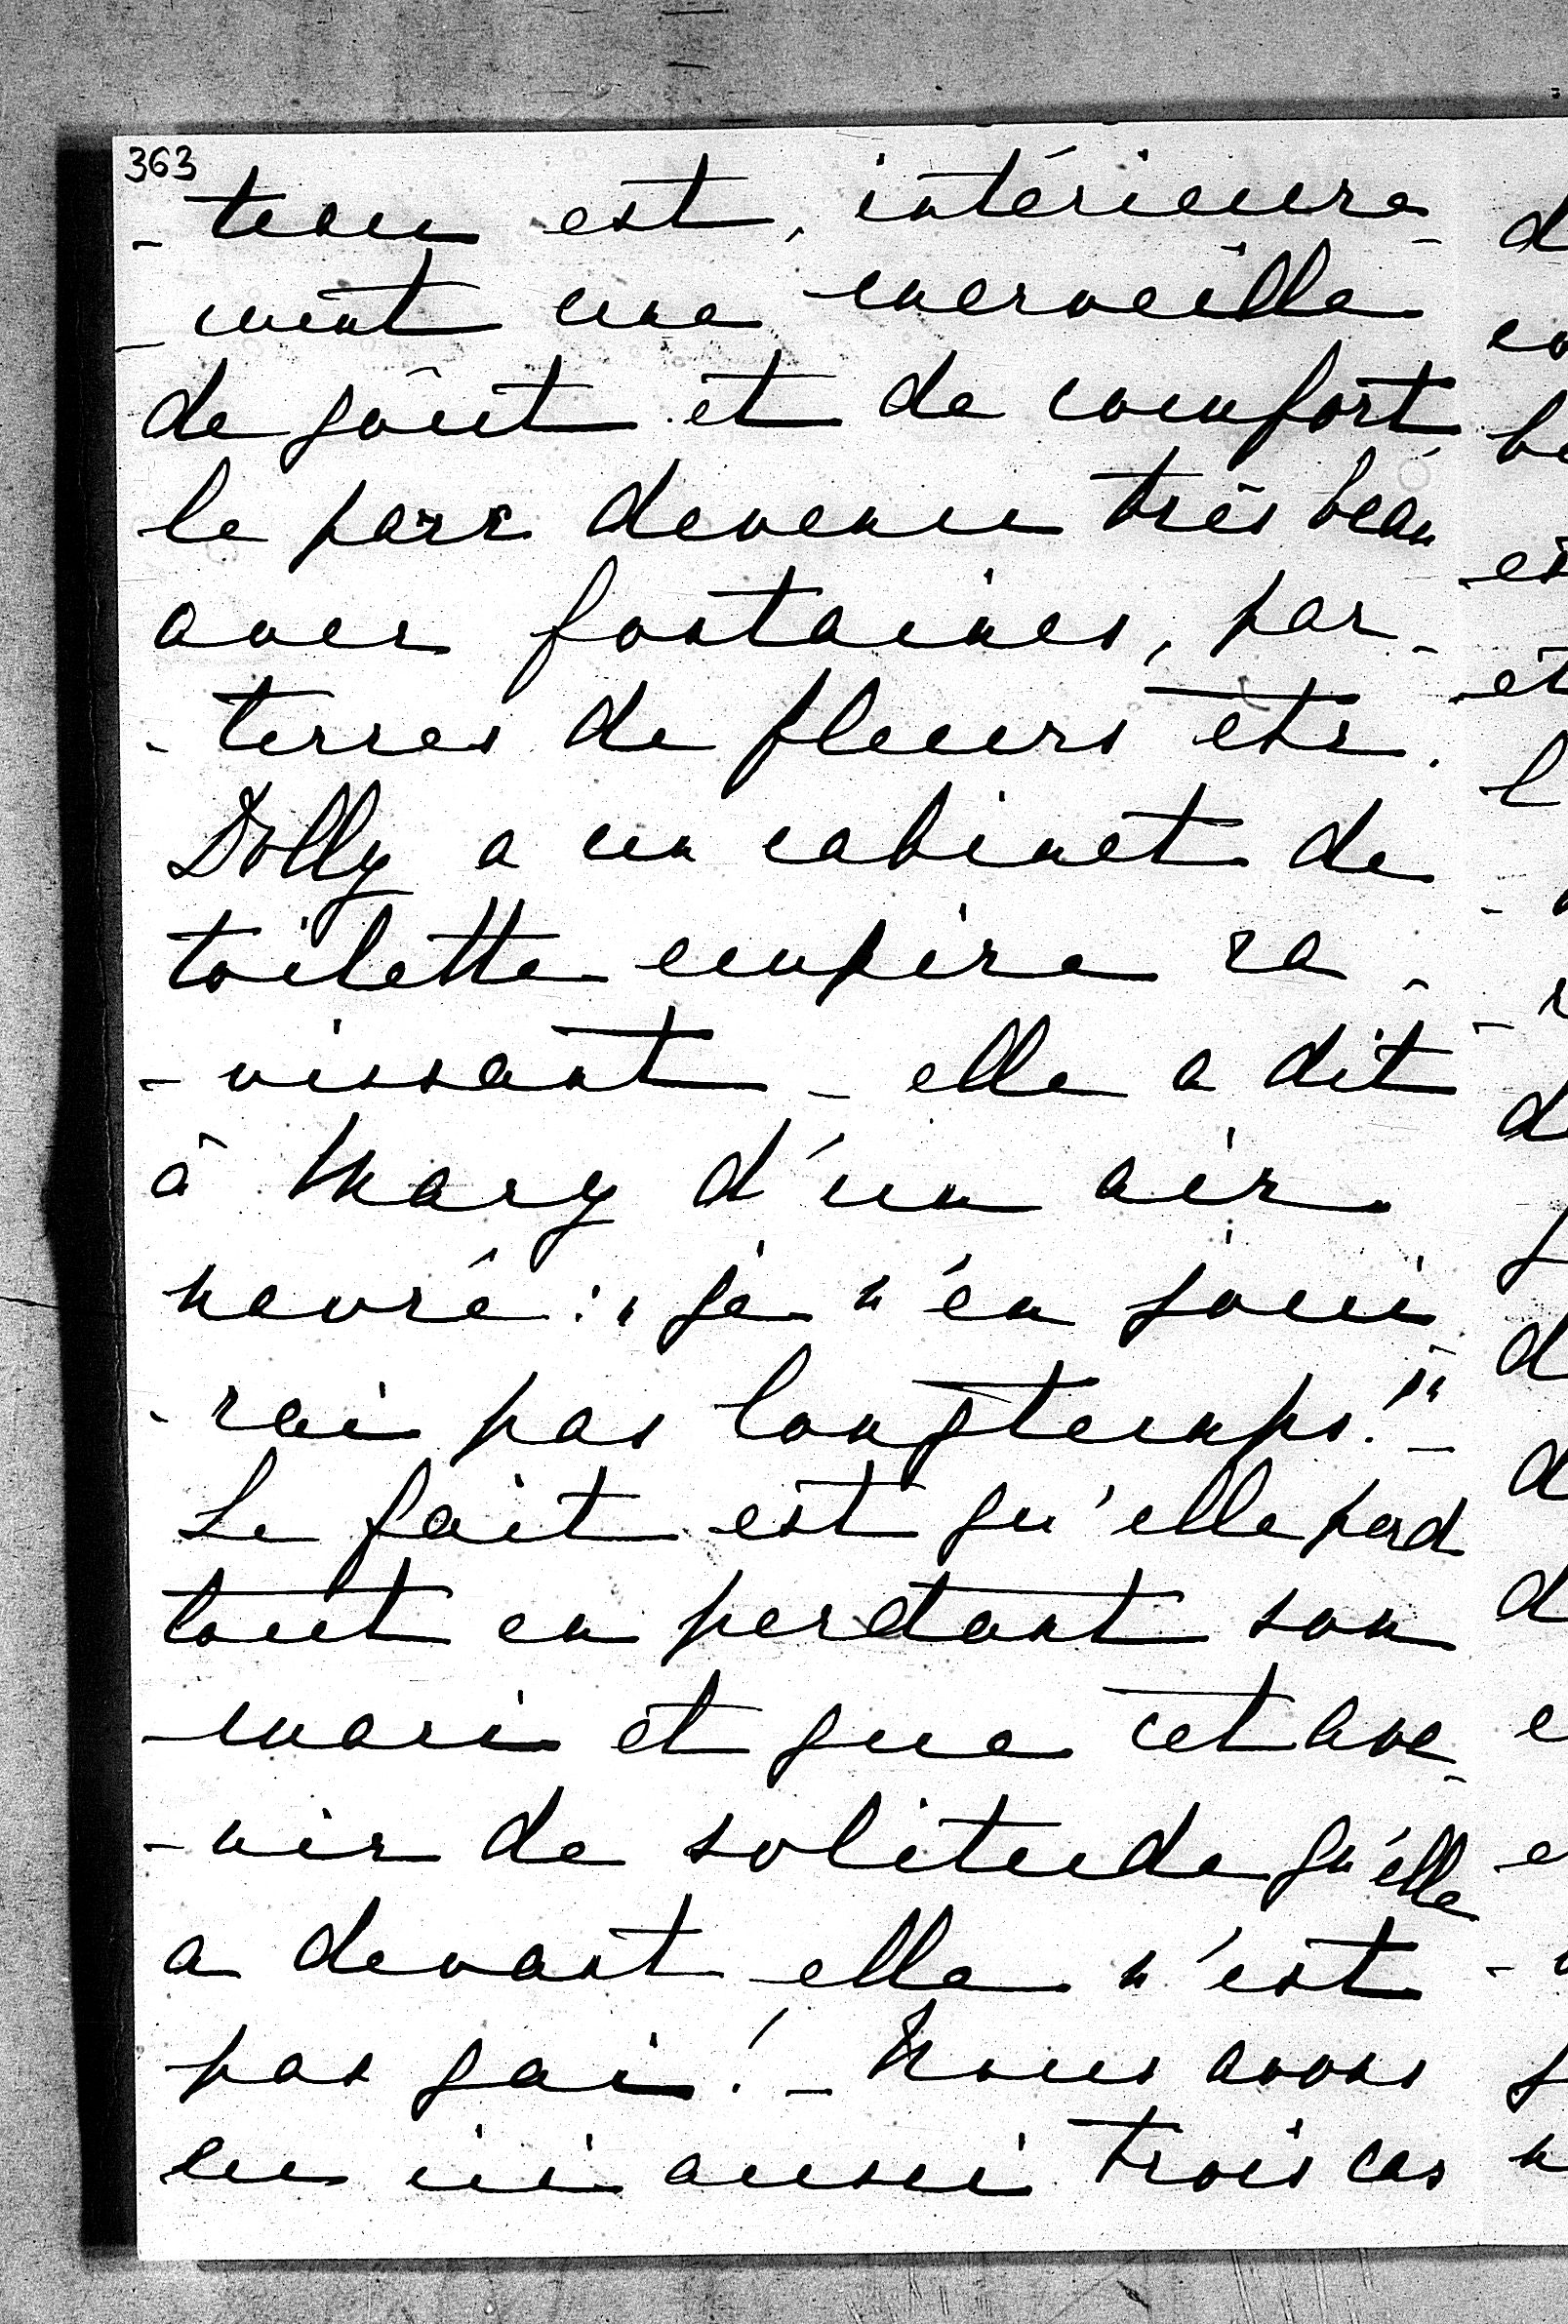 363
-teau est, intérieure-
-ment une merveille
de goût et de comfort
le parc devenu très beau
avec fontaines, par-
-terres de fleurs etc.
Dolly a un cabinet de
toilette empire ra-
-vissant - elle a dit
à Mary d'un air
navré : "je n'en joui
-rai pas longtemps!" -
Le fait est qu'elle perd
tout en perdant son
mari et que cet ave-
-nir de solitude qu'elle
a devant elle n'est
pas gai! - Nous avons
eu ici aussi trois cas